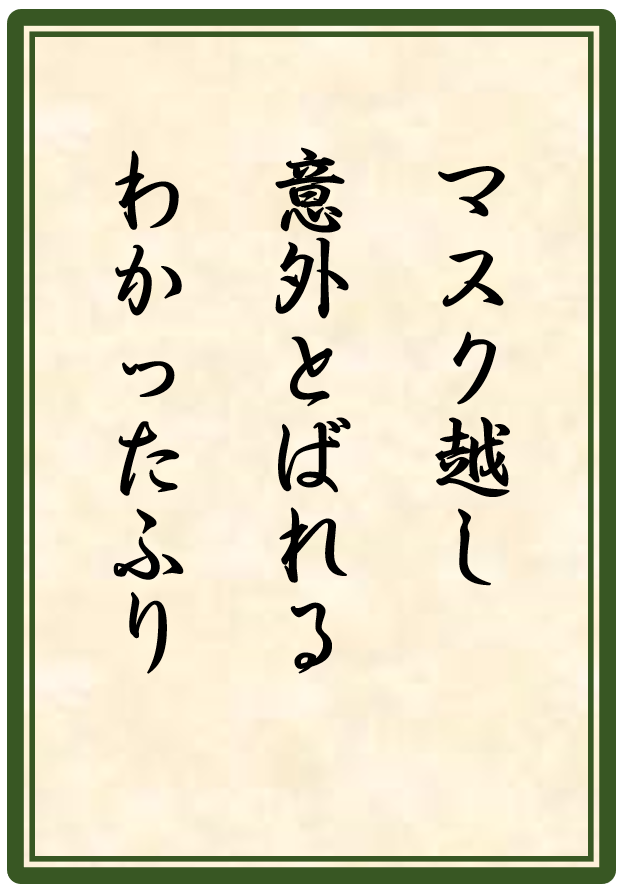 マスク越し
意外とばれる
わかったふり